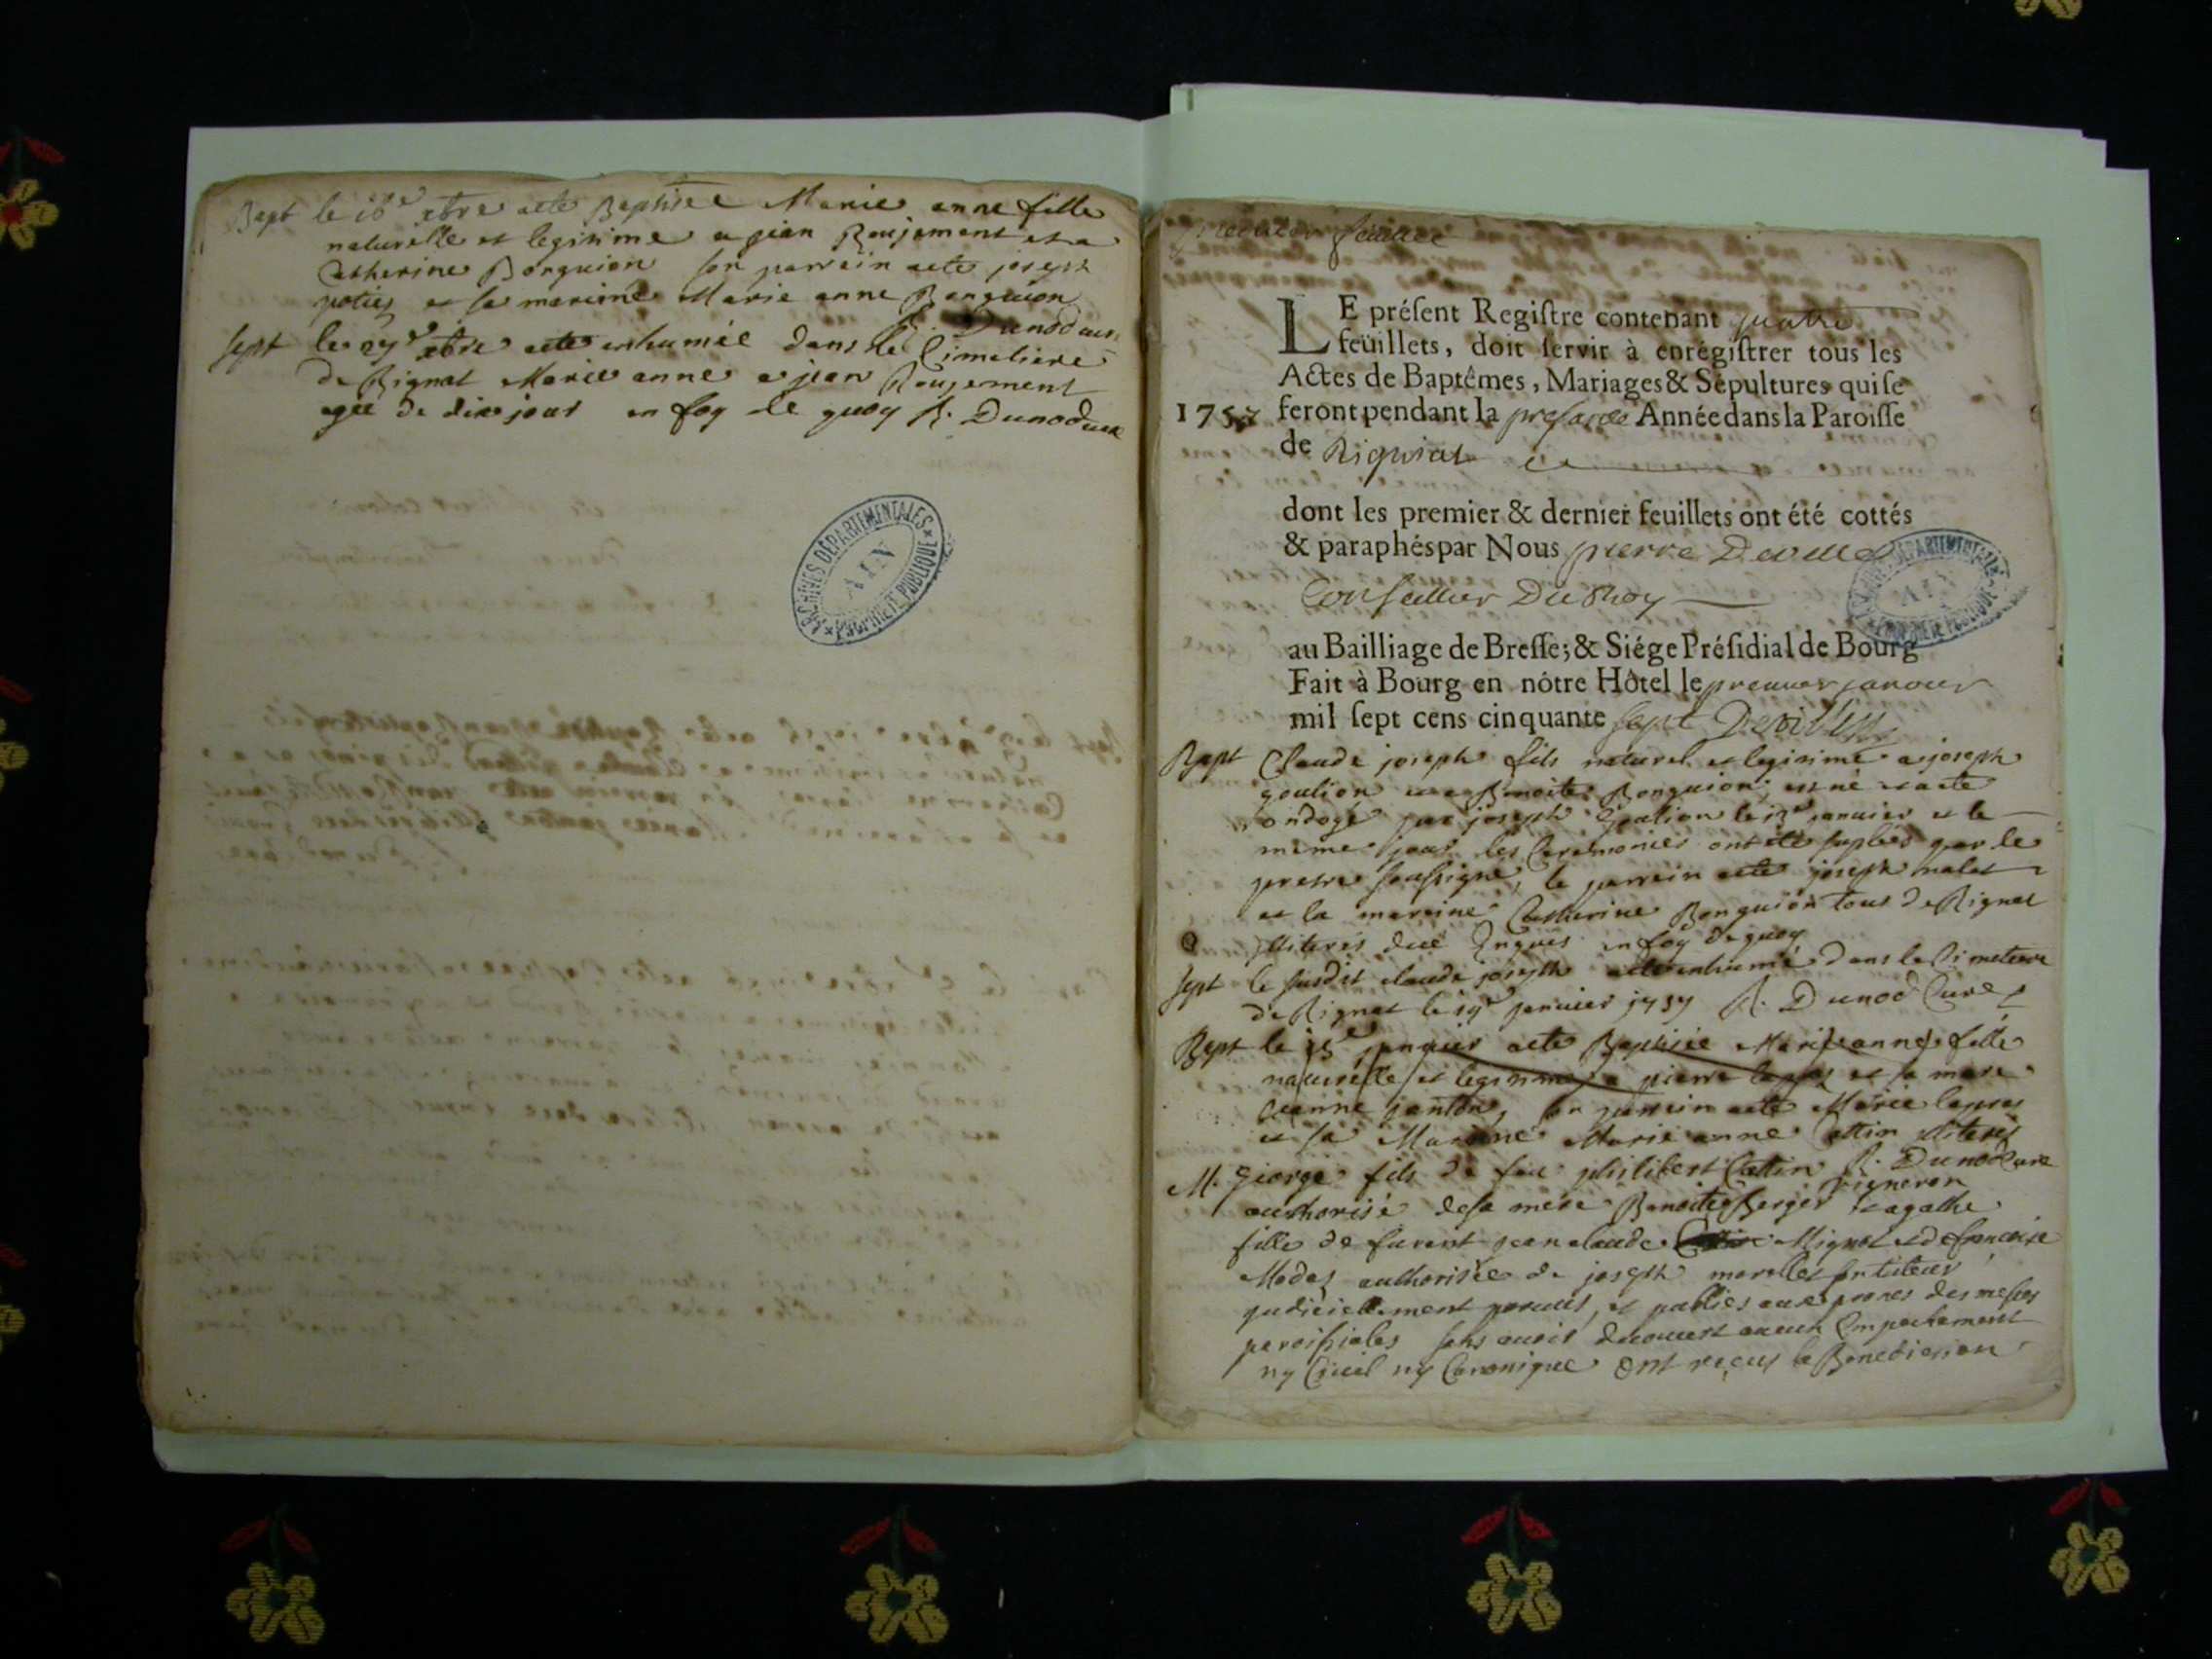 Bapt le 18e xbre a eté Baptisée Marie anne fille
naturelle et legitime a jean Roujemont et a
Catherine Bonguion son parrein a eté joseph
potier et sa mareine Marie anne Bonguion
R. Dunod curé
sept le 27e xbre a eté enhumée dans le Cimetiere
de Rignat Marie anne a jean Roujemont
agée de dix jour en foy de quoy R. Dunod curé
ARCHIVES DÉPARTEMENTALES
AIN
PROPRIÉTÉ PUBLIQUE
premier feuillet
LE préſent Regiſtre contenant quatre
feüillets, doit ſervir à enrégiſtrer tous les
Actes de Baptêmes, Mariages & Sépultures qui ſe
1757 feront pendant la presante Année dans la Paroiſſe
de Rigniat
dont les premier & dernier feuillets ont été cottés
& paraphés par Nous pierre Deville
Conseillier Du Roy
ARCHIVES DÉPARTEMENTALES
AIN
PROPRIÉTÉ PUBLIQUE
au Bailliage de Breſſe; & Siége Préſidial de Bourg
Fait à Bourg en nôtre Hôtel le premier janvier
mil ſept cens cinquante sept Deville
Bapt Claude joseph fils naturel et legitime a joseph
goulion et a Benoite Bonguion, est né et a eté
ondogé par joseph goulion le 13e janvier et le
meme jour les Ceremonies ont été suplées par le
prestre soussigné, le parrein a eté joseph
et la mareine Catherine Bonguion tous de Rignat
illiterés due Enquis en foy de quoy
sept le susdit claude joseph a eté enhumé dans le Cimetiere
de Rignat le 19e janvier 1757 R. Dunod Curé
Bapt le 25e janvier a eté Baptisée Marie anne fille
naturelle et legitime a pierre lapras et sa mere
jeanne janton, son parrein a eté Marie lapras
et sa Mareine Marie anne Cattin illiterés
R. Dunod Curé
M. George fils de feu philibert Cattin vigneron
authorisé de sa mere Benoite Berger et agathe
fille de furent jean claude Mignot et de francoise
Modas authorisée de joseph morellet son tuteur
judiciellement pourvus, et publiés aux prones des messes
paroissiales sans avoir decouvert aucun Empechement
ny Civil ny Canonique ont reçus la Benediction